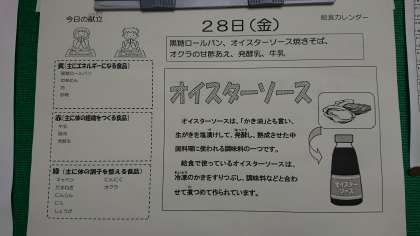 今日の献立
給食カレンダー
28日(金)
黒糖ロールパン、オイスターソース焼きそば、
オクラの甘酢あえ、発酵乳、牛乳
黄(主にエネルギーになる食品)
黒糖ロールパン
中華めん
油
砂糖
赤(主に体の組織をつくる食品)
牛乳
豚肉
発酵乳
緑(主に体の調子を整える食品)
キャベツ
にんにく
たまねぎ
オクラ
にんじん
にら
しょうが
オイスターソース
オイスターソースは、「かき油」とも言い、
生がきを塩漬けして、発酵し、熟成させた中
国料理に使われる調味料の一つです。
給食で使っているオイスターソースは、
冷凍のかきをすりつぶし、調味料などと合わ
せて煮つめて作られています。
オイスター
ソース